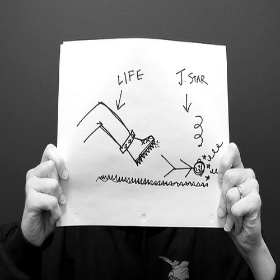 LIFE
J. STAR